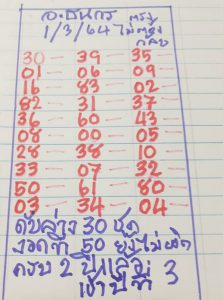 อ.ธนกร ตรง
1/3/64 ไม่ตรง
กลับ
30 — 39 — 35 —
01 — 06 — 09 —
16 — 83 — 02 —
82 — 31 — 37 —
36 — 60 — 43 —
08 — 00 — 05 —
28 — 38 — 10 —
33 — 07 — 32 —
50 — 61 — 80 —
03 — 34 — 04 —
ดับล่าง 30 ชุด
งวดที่ 50 ยังไม่ผิด
ครบ 2 ปีแล้ว
เข้าปีที่ 3